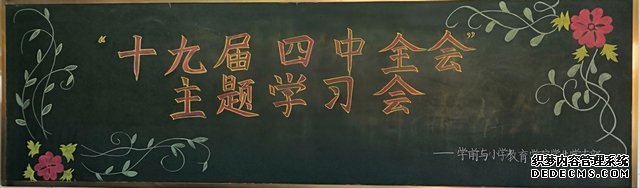 “十九届四中全会”
主题学习会
——学前与小学教育学院学生党支部
织梦内容管理系统
DEDECMS.COM